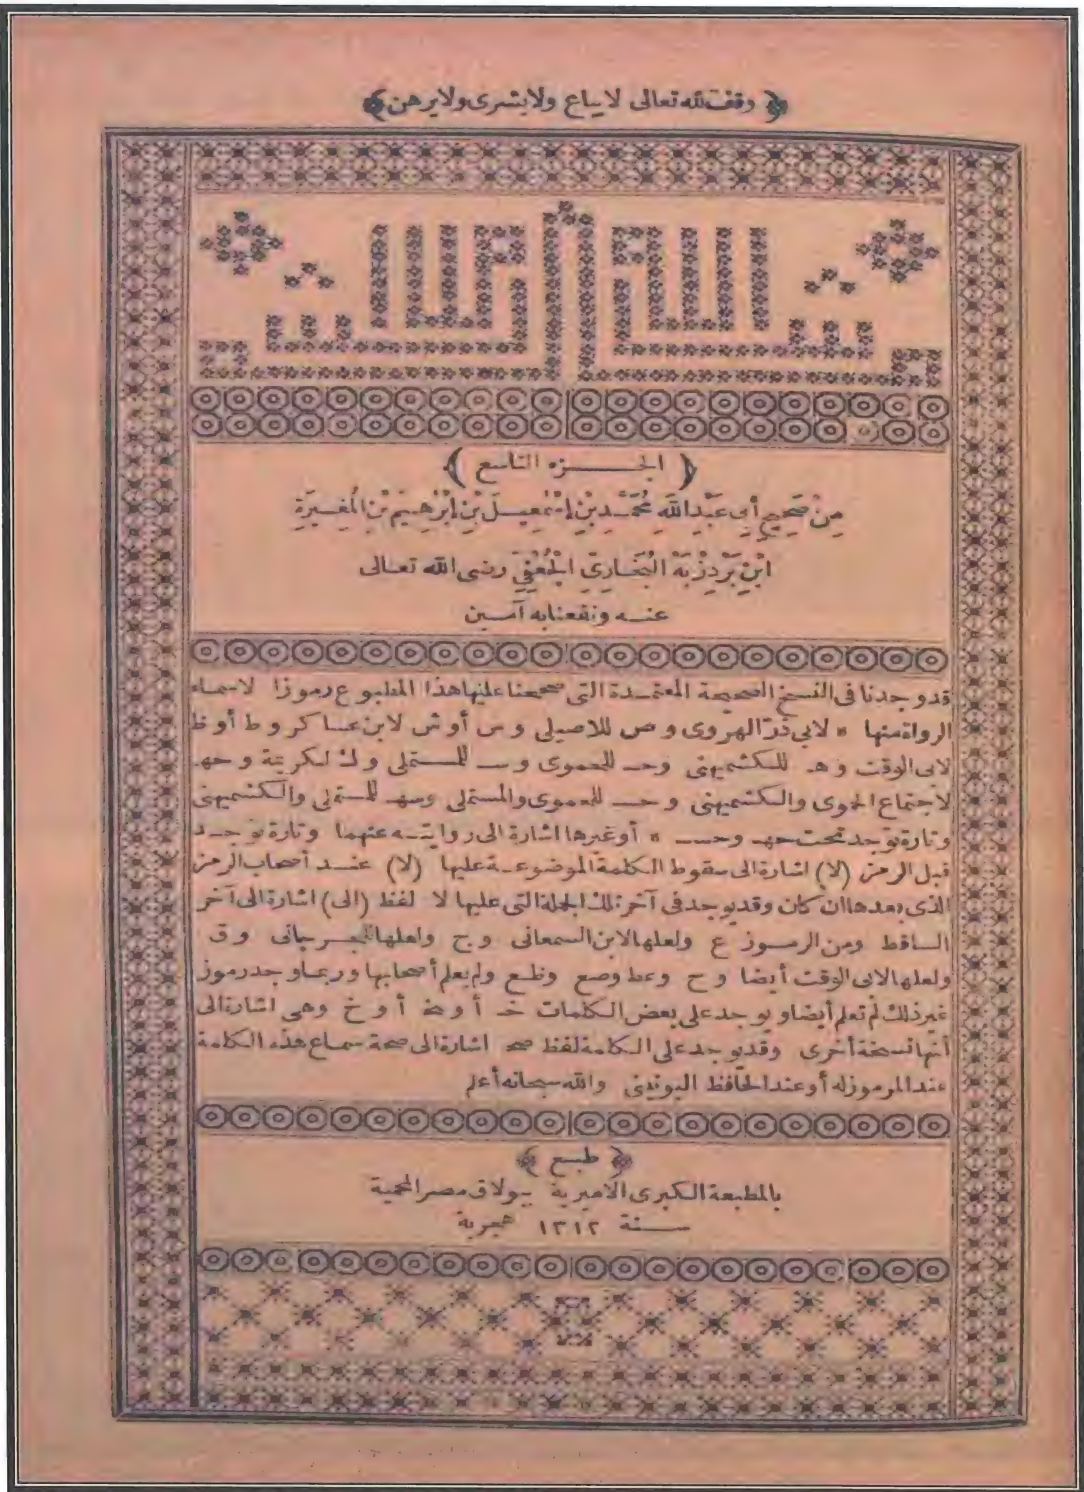 وقف لله تعالى لا يباع ولا يشترى ولا يرهن
بسم الله الرحمن الرحيم
( الجزء التاسع )
مِنْ صَحِيحِ أَبِي عَبْدِ اللهِ مُحَمَّدِ بْنِ إِسْمٰعِيلَ بْنِ إِبْرٰهِيمَ بْنِ الْمُغِيرَةِ
ابْنِ بَرْدِزْبَهْ الْبُخَارِيِّ الْجُعْفِيِّ رضى الله تعالى
عنه ونفعنا به آمين
قد وجدنا فى النسخ الصحيحة المعتمدة التى صححنا عليها هذا المطبوع رموزا لاسماء
الرواة منها ه لابى ذرّ الهروى و ص للاصيلى و س أو ش لابن عساكر و ط أو ظ
لابى الوقت و هـ للكشميهنى و حـ للحموى و سـ للمستملى و ك لكريمة و حهـ
لاجتماع الحموى والكشميهنى و حسـ للحموى والمستملى وسهـ للمستملى والكشميهنى
وتارة توجد تحت حهـ وحسـ ه أو غيرها اشارة الى روايته عنهما وتارة توجد
قبل الرمز (لا) اشارة الى سقوط الكلمة الموضوعة عليها (لا) عند أصحاب الرمز
الذى بعدها ان كان وقد يوجد فى آخر تلك الجملة التى عليها لا لفظ (الى) اشارة الى آخر
الساقط ومن الرموز ع ولعلها لابن السمعانى و ج ولعلها للجرجانى و ق
ولعلها لابى الوقت أيضا و ح وعط وصع وظع ولم يعلم أصحابها وربما وجد رموز
غير ذلك لم تعلم أيضا ويوجد على بعض الكلمات خـ أو خـ أو خ وهى اشارة الى
أنها نسخة أخرى وقد يوجد على الكلمة لفظ صحـ اشارة الى صحة سماع هذه الكلمة
عند المرموز له أو عند الحافظ اليونينى والله سبحانه أعلم
( طبع )
بالمطبعة الكبرى الاميرية ببولاق مصر المحمية
سنة ١٣١٢ هجرية